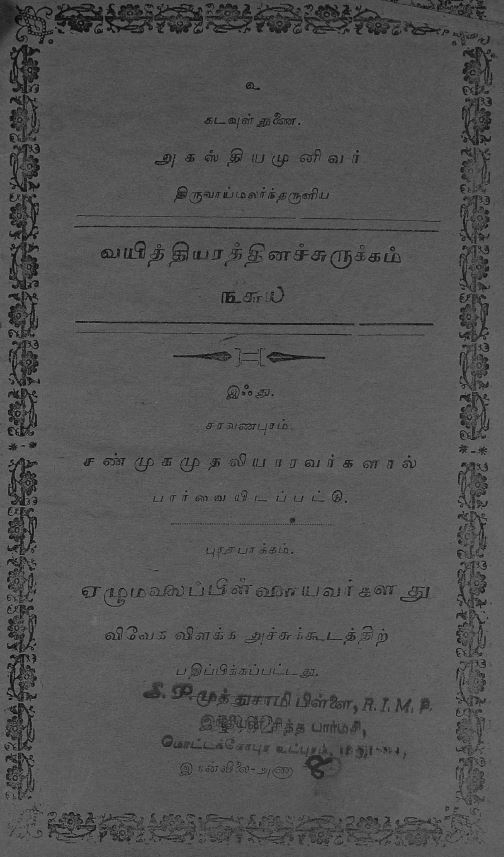 உ
கடவுள் துணை.
அகஸ்தியமுனிவர்
திருவாய்மலர்ந்தருளிய
வயித்தியரத்தினச்சுருக்கம்
௩௱௬௰
இஃது.
சரவணபுரம்.
சண்முகமுதலியாரவர்களால்
பார்வையிடப்பட்டு.
புரசபாக்கம்.
ஏழுமலைப்பிள்ளையவர்களது
விவேக விளக்க அச்சுக்கூடத்திற்
பதிப்பிக்கப்பட்டது.
S. P. முத்துசாமி பிள்ளை, R. I. M. P.
சித்த பார்மசி,
மொட்டக்கோபுர உட்புறம்,
இதன்விலை-அணா